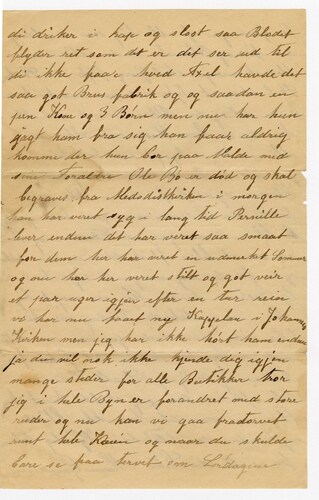 di driker i hap og slost saa Blodet
flyder ret som det er det ser ud til
di ikke faar hved Axel havde det
saa got Brus fabrik og og saadan en
pen Kone og 3 Børn men nu har hun
jagt ham fra sig han faar aldrig
komme der hun bor paa Molde med
sine Foraldre Ole Bø er død og skal
begraves fra Metodistkirken i morgen
han har veret syg lang tid Pernille
lever endnu det har veret saa smaat
for dem her har veret en udmerket Sommer
og nu har her veret stilt og got veir
et par uger igjen efter en tur rein
vi har nu faaet ny Kappelan i Johannes
Kirken men jeg har ikke hørt ham endnu
ja du vil nok ikke kjende dig igjen
mange steder for alle Butikker tror
jeg i hele Byen er forandret med store
ruder og nu kan vi gaa fradtorvet
runt hele Kaien og naar du skulde
bare se paa torvet om Lørdagene